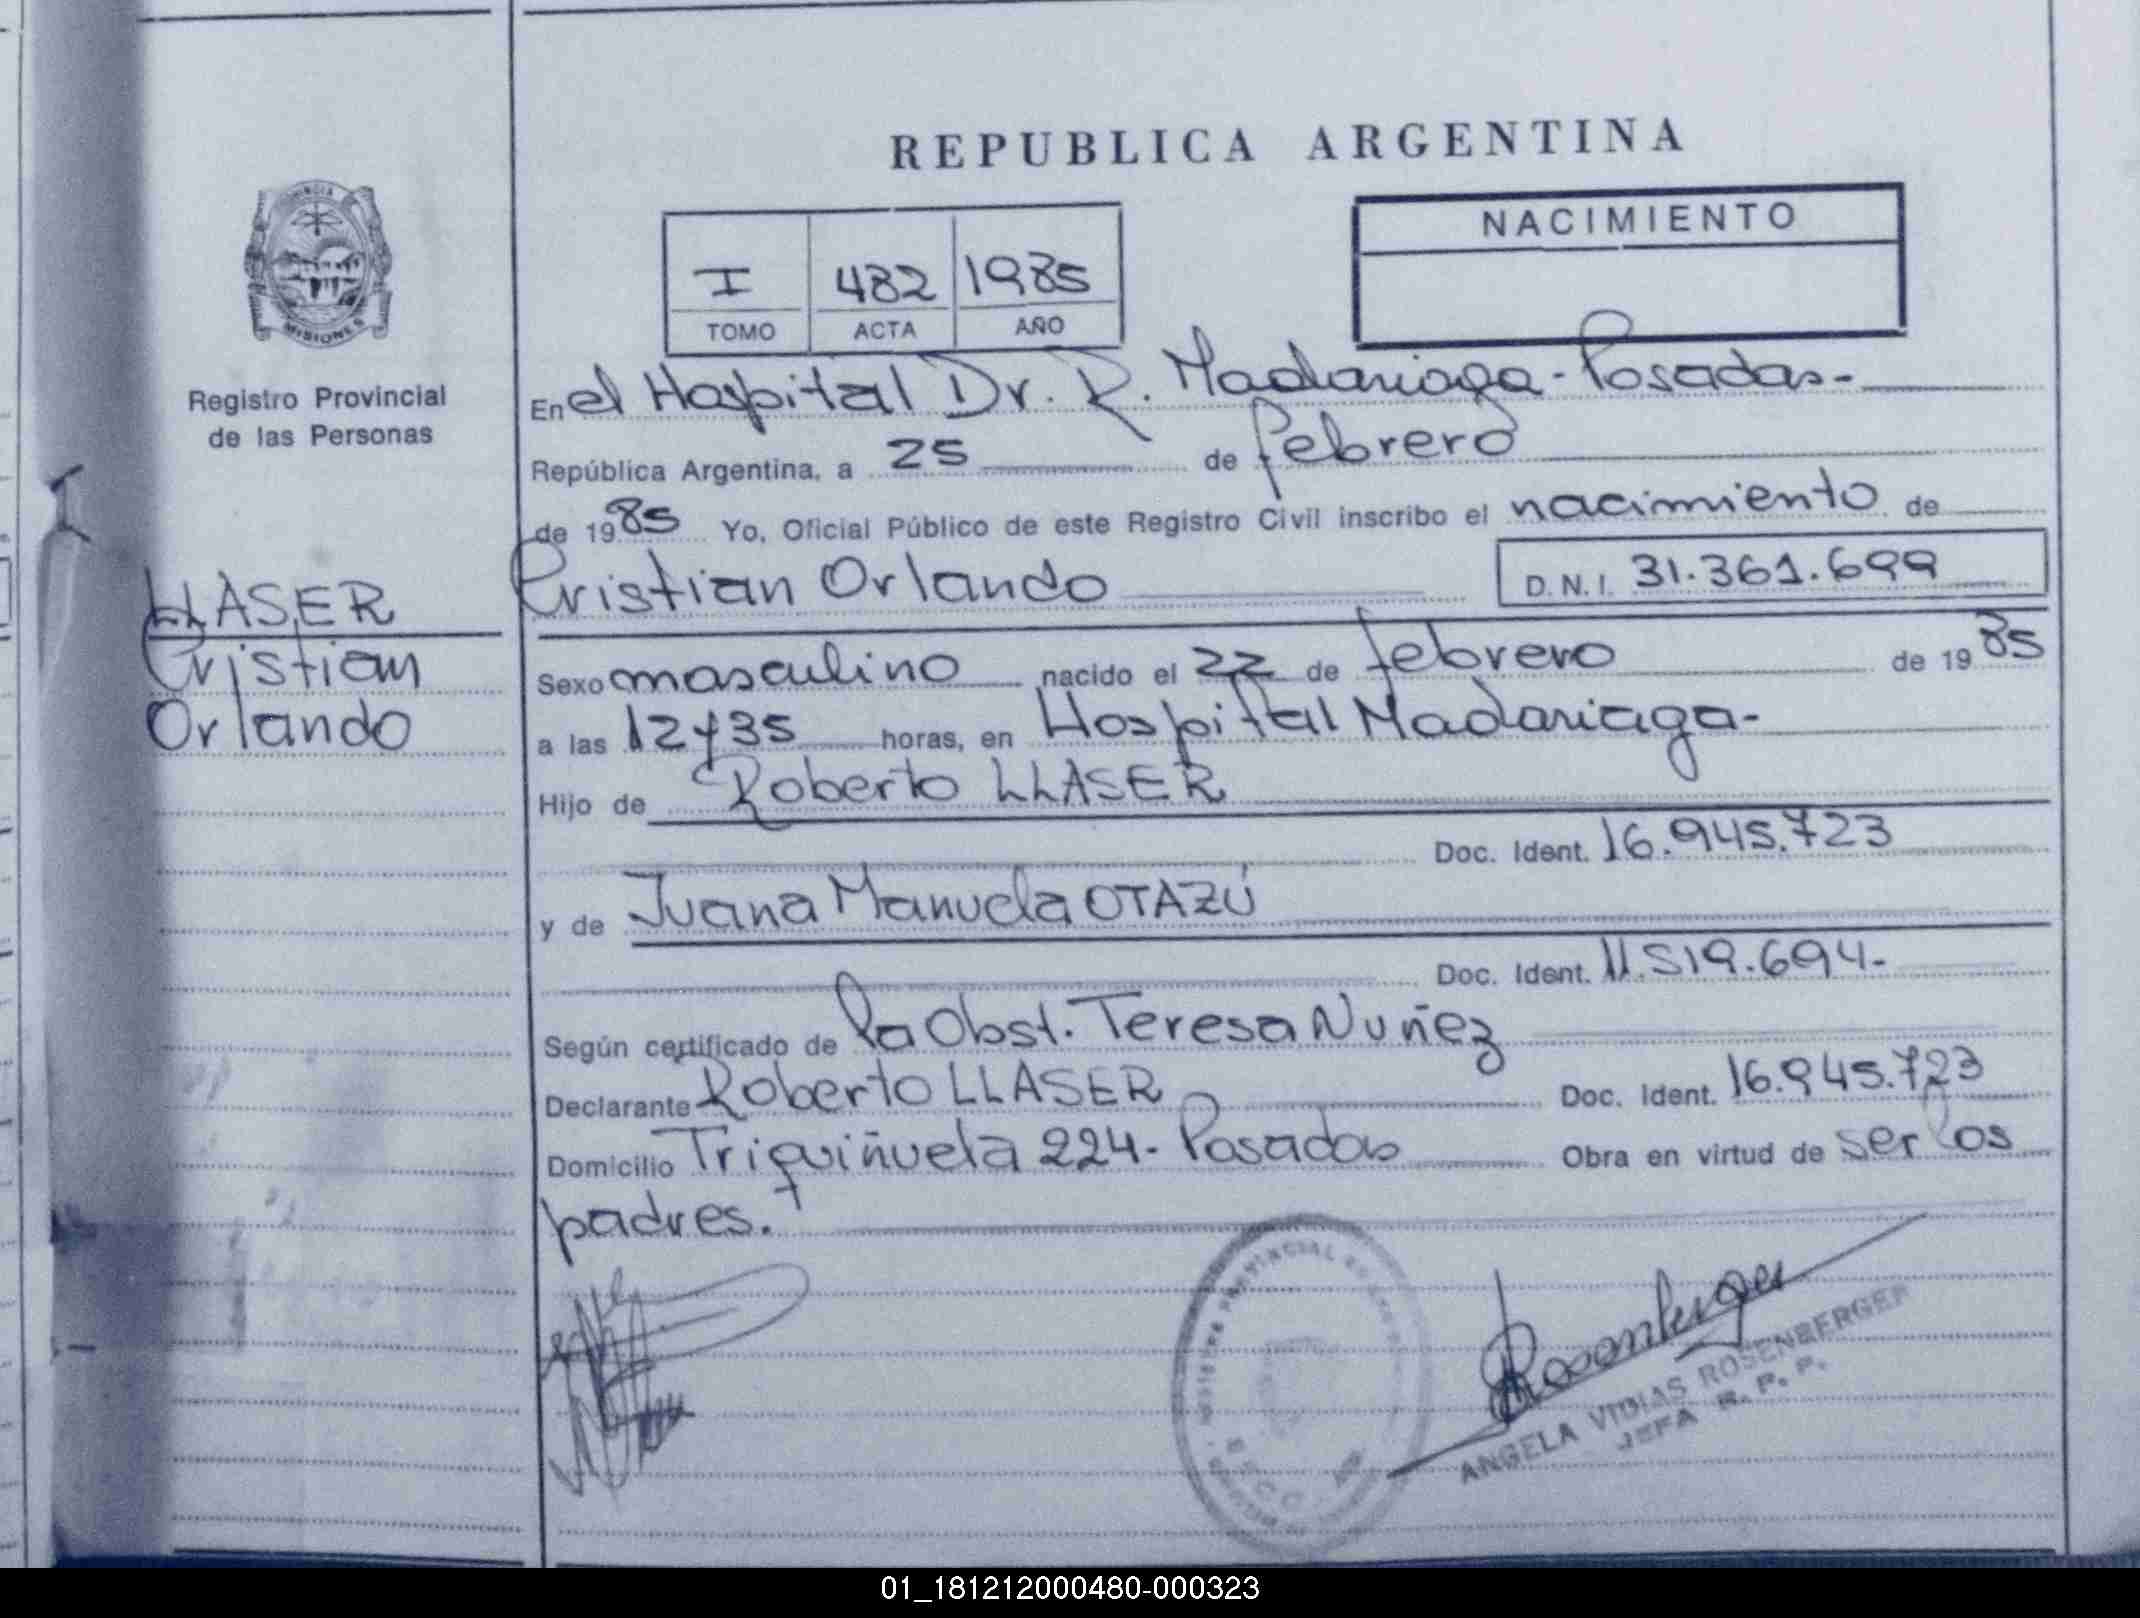 REPUBLICA ARGENTINA
NACIMIENTO
I 482 1985
TOMO ACTA AÑO
MISIONES
Registro Provincial
de las Personas
LLASER
Cristian
Orlando
En el Hospital Dr. R. Madariaga - Posadas -
República Argentina, a 25 de febrero
de 1985 Yo, Oficial Público de este Registro Civil inscribo el nacimiento de
Cristian Orlando D.N.I. 31.361.699
Sexo masculino nacido el 22 de febrero de 1985
a las 12 y 35 horas, en Hospital Madariaga-
Hijo de Roberto LLASER
Doc. Ident. 16.945.723
y de Juana Manuela OTAZÚ
Doc. Ident. 11.519.694-
Según certificado de la Obst. Teresa Nuñez
Declarante Roberto LLASER Doc. Ident. 16.945.723
Domicilio Triquiñuela 224- Posadas Obra en virtud de ser los
padres.
Rosenberger
ANGELA VIDIAS ROSENBERGER
JEFA R. P. P.
01_181212000480-000323